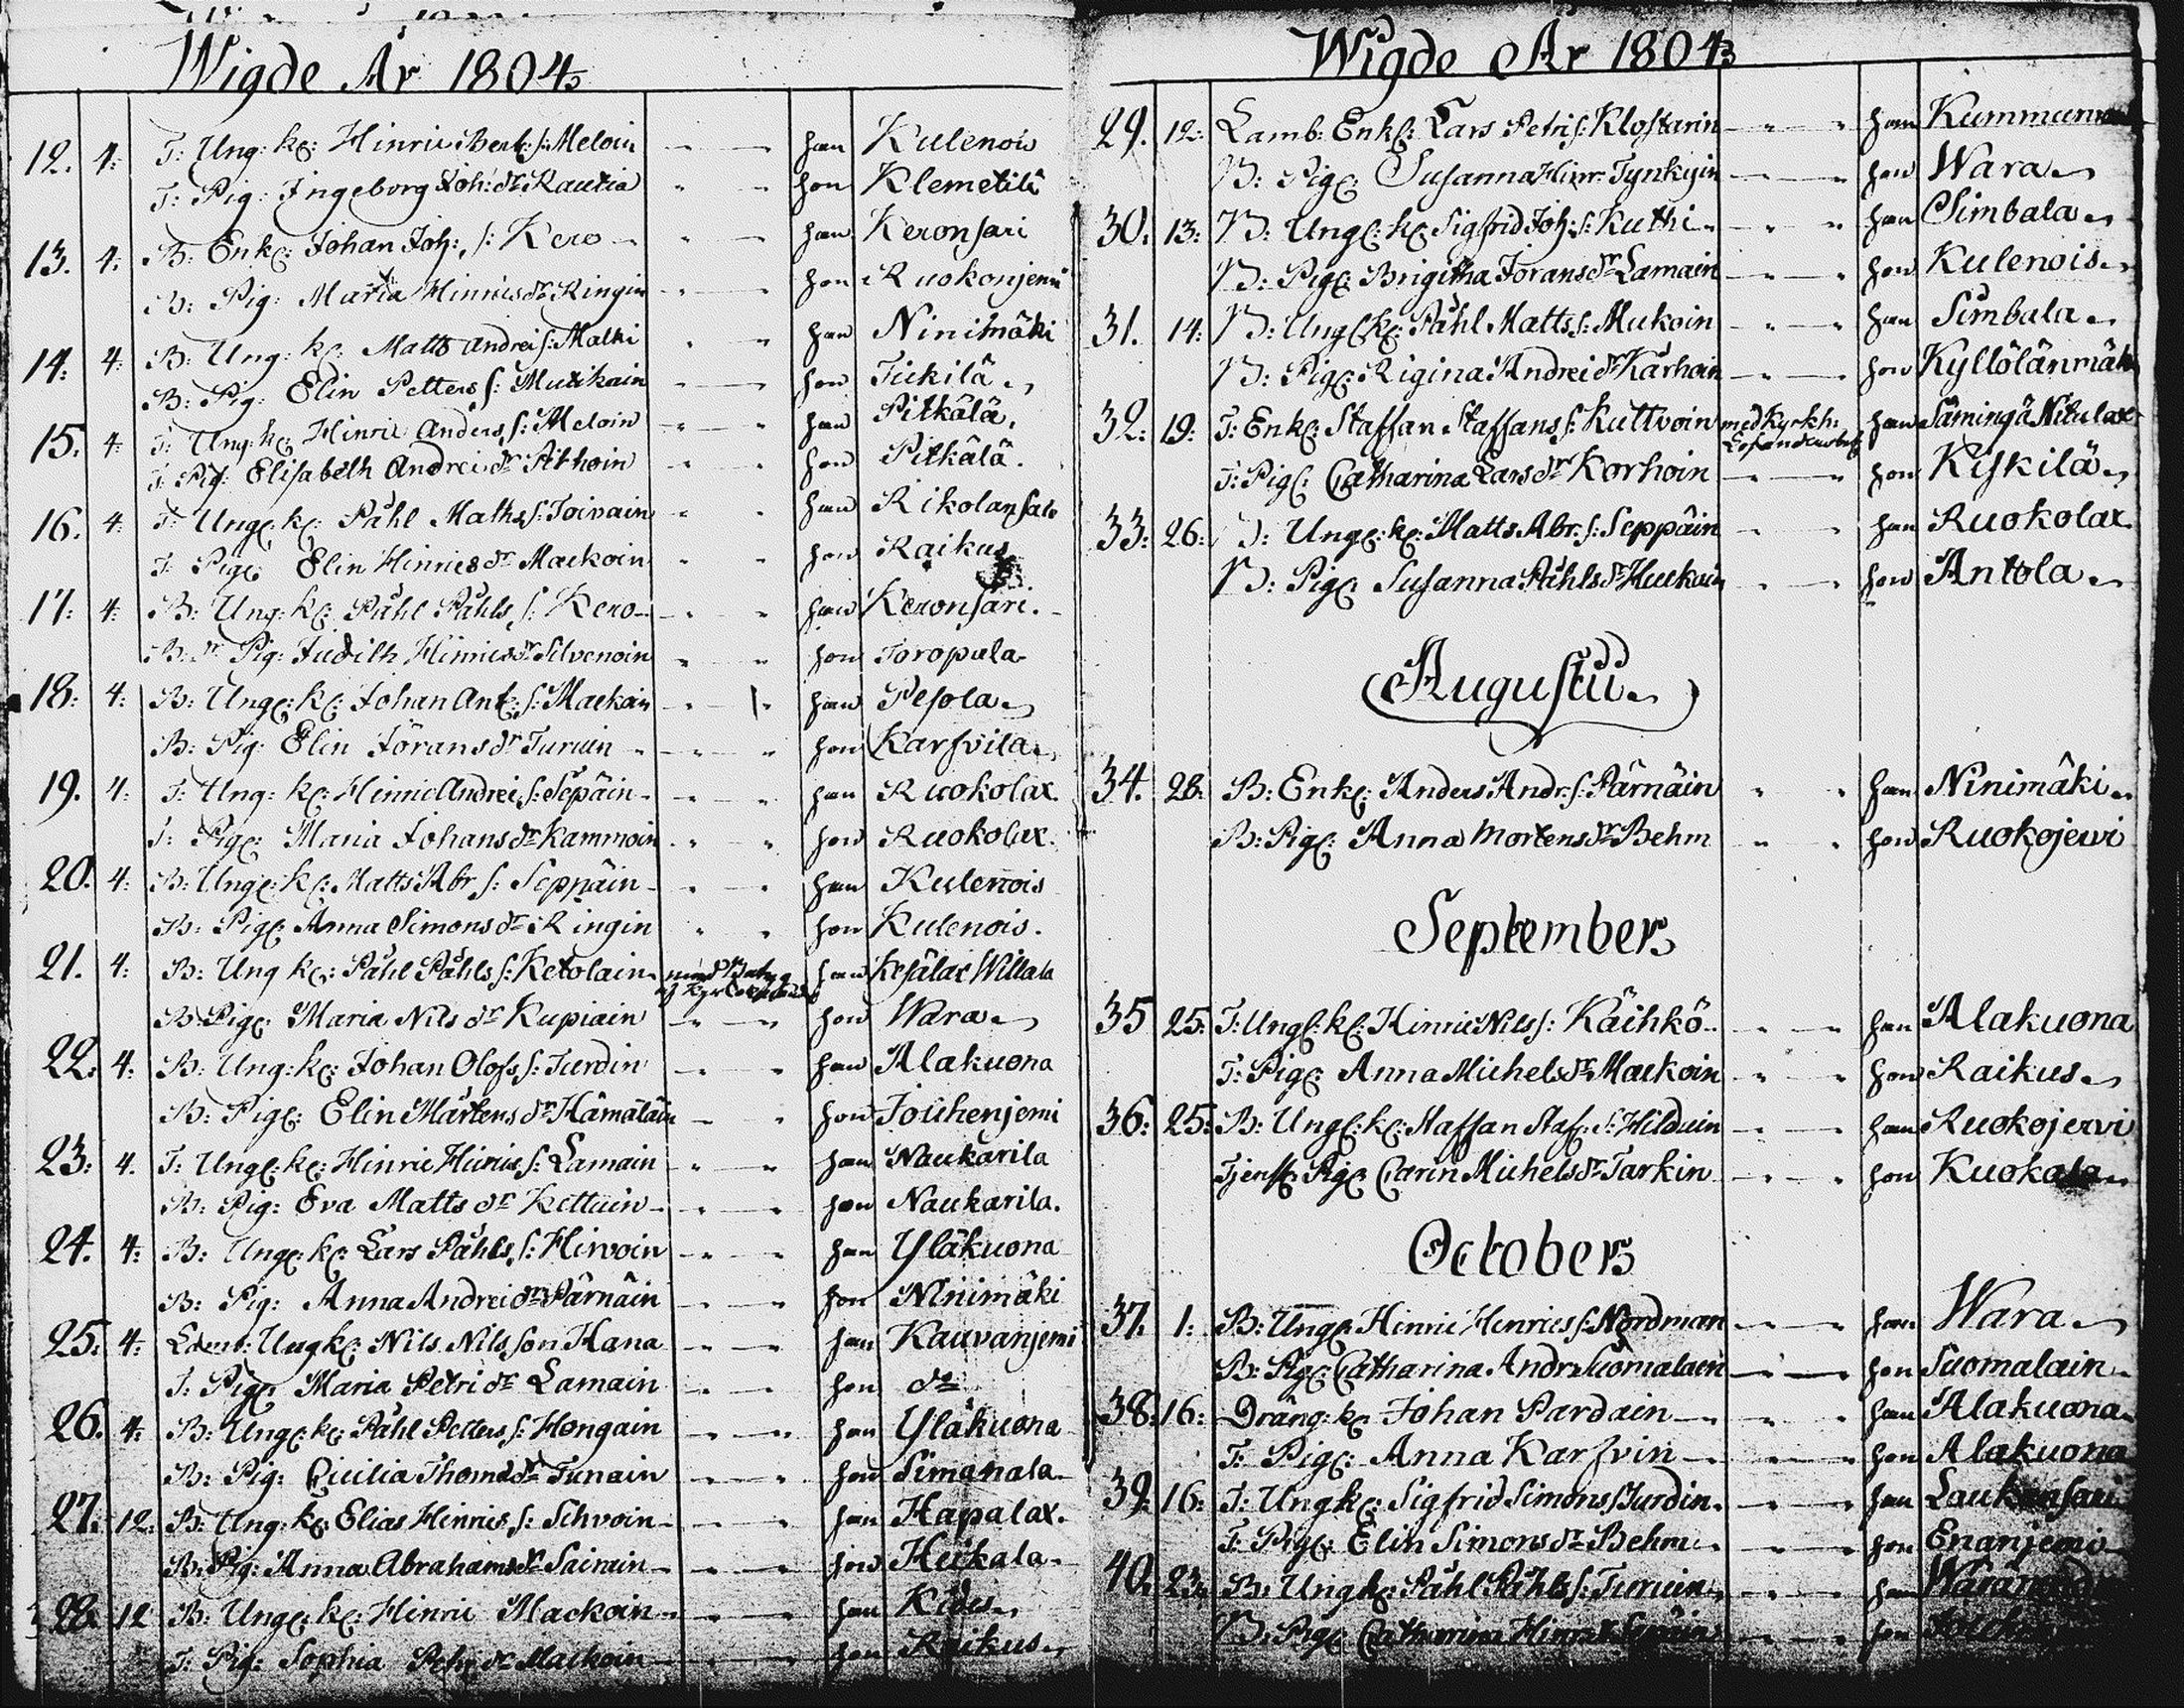 Wigde År 1804
12. 4: T: Ung: kc: Hinric Bert: s: Meloin han Kulenois
T: Pig: Ingeborg Joh: dr Rautia hon Klemetilä
13. 4. B: Enkc: Johan Joh: s: Kero han Keronsari
B: Pig: Maria Hinrics dr Ringin hon Ruokonjemi
14: 4: B: Ung: kc: Matts Andrei s: Malki han Ninimäki
B: Pig: Elin Petters s: Mutikain hon Tiikilä
15. 4: T: Ung: kc: Hinric Anders s: Meloin han Pitkälä.
T: Pig: Elisabeth Andrei dr Pithoin hon Pitkälä.
16. 4: T: Ungc: kc: Påhl Maths s: Toivain han Rikolansalo
T: Pigc: Elin Hinrics dr Mackoin hon Raikus
17: 4: B: Ung: kc: Påhl Påhls s: Kero han Keronsari.
B: dr Pig: Judith Hinrics dr Silvenoin hon Toropala
18: 4: B: Ungc: kc: Johan Ant: s: Mackoin han Pesola
B: Pig: Elin Jörans dr Turuin hon Karsvila
19. 4: T: Ung: kc: Hinric Andrei s: Sepäin han Ruokolax.
T: Pigc: Maria Johans dr Kammoin hon Ruokolax.
20. 4: B: Ungc: kc: Matts Abr: s: Seppäin han Kulenois
B: Pigc: Anna Simons dr Ringin hon Kulenois.
21. 4: B: Ung kc: Påhl Påhls s: Ketolain med han Kesälax Willala
B: Pigc: Maria Nils dr Kupiain hon Wara
22: 4: B: Ung: kc: Johan Olofs s: Turdin han Alakuona
B: Pigc: Elin Mårtens dr Hämäläin hon Jouhenjemi
23: 4. T: Ungc: kc: Hinric Hinrics s: Lamain han Naukarila
B: Pig: Eva Matts dr Kettuin hon Naukarila.
24. 4: B: Ungc: kc: Lars Påhls s: Hirvoin han Yläkuona
B: Pig: Anna Andrei dr Pärnäin hon Ninimäki
25. 4: Ung kc: Nils Nils son Hana han Kauvanjemi
T: Pigc: Maria Petri dr Lamain hon do
26. 4: B: Ungc: kc: Påhl Petters s: Hongain han Yläkuona
B: Pig: Cicilia Thomæ dr Tunain hon Simanala
27. 12: B: Ung: kc: Elias Hinrics s: Schvoin han Hapalax.
B: Pig: Anna Abrahams dr Sairain hon Heikala
28. 12 B: Ungc: kc: Hinric Mackoin han Kides
T: Pig: Sophia Pehr dr Mackoin hon Raikus
Wigde År 1804
29. 12: Lamb: Enkc: Lars Petri s: Klostarin han
B: Pigc: Susanna Hinr: Tynkyin hon Wara
30. 13: B: Ungc: kc: Sigfrid Joh: s: Kuthi han Simbala
B: Pigc: Brigitha Jorans dr Lamain hon Kulenois
31. 14: B: Ungc kc: Påhl Matts s: Mukoin han Simbala
B: Pigc: Rigina Andrei dr Karhoin hon Kyllölänmäki
32: 19: T: Enkc: Staffan Staffans s: Kuttvoin med Kyrkh: han Sämingä Nitulax
T: Pigc: Catharina Lars dr Korhoin hon Kiskilä
33: 26: B: Ungc: kc: Matts Abr: s: Seppäin han Ruokolax
B: Pigc: Susanna Påhls dr Huckain hon Antola
Augusti
34. 28. B: Enkc: Anders Andr: s: Pärnäin han Ninimäki
B: Pigc: Anna Mortens dr Behm hon Ruokojerwi
September
35 25: T: Ungc: kc: Hinric Nils s: Käihkö han Alakuona
T: Pigc: Anna Michels dr Mackoin hon Raikus
36: 25: B: Ungc: kc: Staffan Staf: s: Hilduin han Ruokojerwi
Tjenst Pigc: Carin Michels dr Tarkin hon Kuokala
October
37. 1: B: Ungc: Hinric Henrics s: Nordman han Wara
B: Pigc: Catharina Andr: Suomalaen hon Suomalain
38: 16: Dräng: kc: Johan Pardain han Alakuona
T: Pigc: Anna Karsvin hon Alakuona
39. 16: T: Ung kc: Sigfrid Simons s Turdin han Laukansari
T: Pigc: Elin Simons dr Behm hon Enanjemi
40. 23. B: Ung kc: Påhl Påhls s: Turuin han
B: Pigc: Catharina Hinr: dr hon